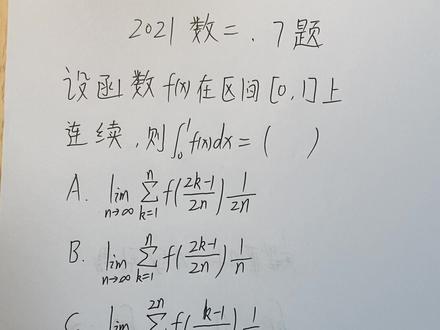 2021 数二. 7题
设函数 f(x) 在区间 [0,1] 上
连续,则∫₀¹f(x)dx = (    )
A. lim_{n→∞} ∑_{k=1}^{n} f((2k-1)/(2n)) 1/(2n)
B. lim_{n→∞} ∑_{k=1}^{n} f((2k-1)/(2n)) 1/n
C. lim ∑^{2n} f((k-1)/ ) 1/